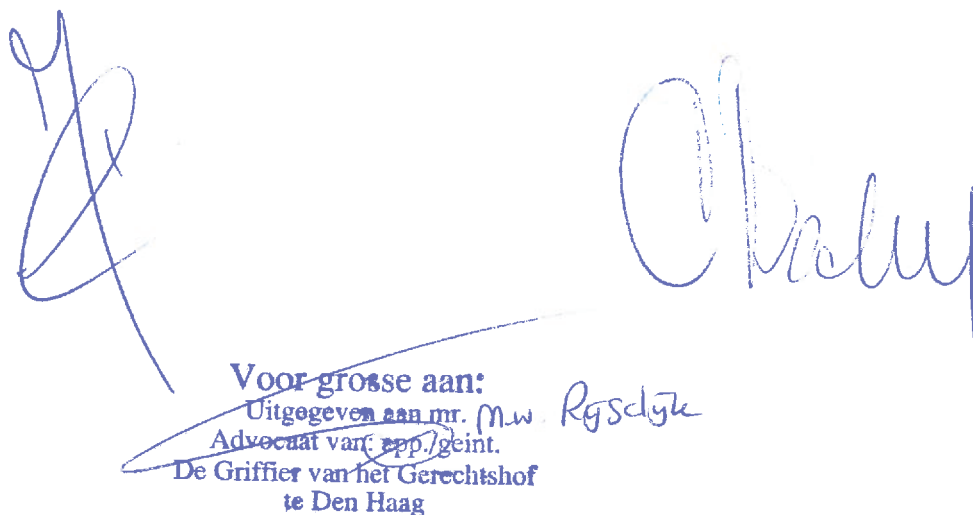 Voor grosse aan:
Uitgegeven aan mr. M.w. Rijsdijk
Advocaat van: app./geint.
De Griffier van het Gerechtshof
te Den Haag